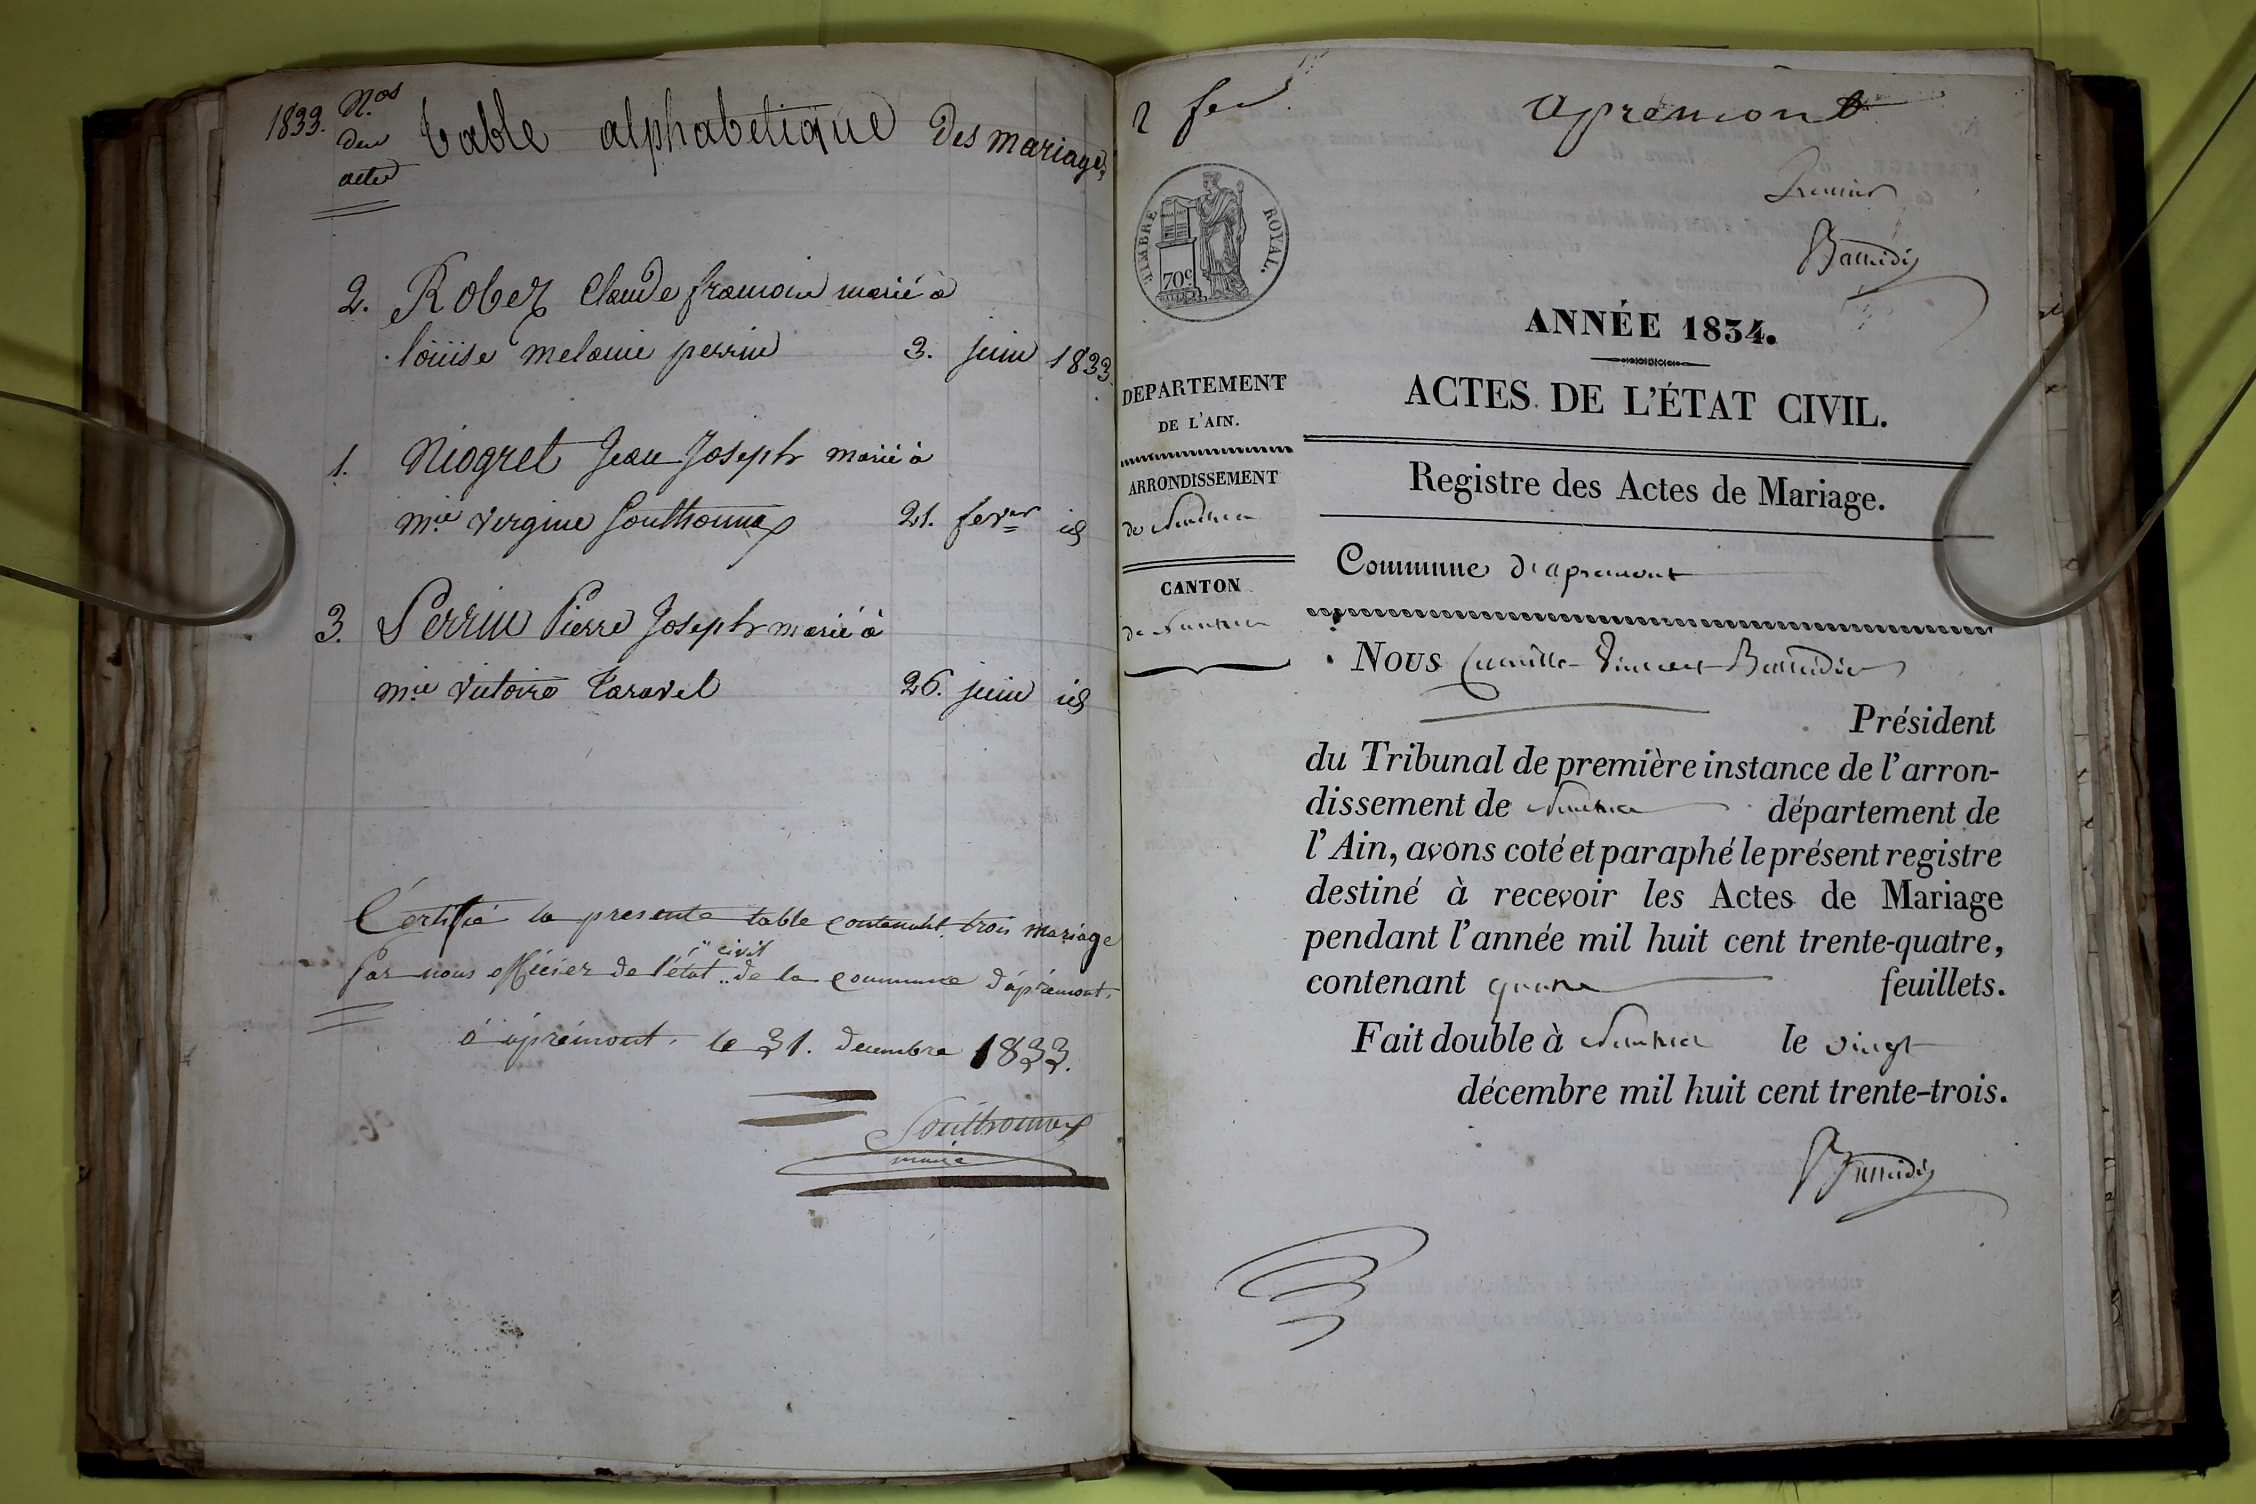 1833.
N.os
des
actes
table alphabetique des mariages
2. Robez Claude francois marié à
louise melanie perrin 3. juin 1833.
1. Niogret Jean Joseph marié à
m.ie vergine Gouthonnex 21. fever id
3. Perrin Pierre Joseph marié à
m.ie victoire taravel 26. juin id
Certifié la presente table contenant trois mariage
Par nous officier de l'état civil de la commune d'aprémont.
à aprémont, le 31. decembre 1833.
Gouthonnex
maire
2 feu
apremont
Premier
TIMBRE ROYAL.
70c
ANNÉE 1834.
DEPARTEMENT
DE L'AIN.
ACTES DE L'ÉTAT CIVIL.
ARRONDISSEMENT
de Nantua
Registre des Actes de Mariage.
CANTON
de Nantua
Commune d'apremont
Nous Camille Vincent
Président
du Tribunal de première instance de l'arron-
dissement de Nantua département de
l'Ain, avons coté et paraphé le présent registre
destiné à recevoir les Actes de Mariage
pendant l'année mil huit cent trente-quatre,
contenant feuillets.
Fait double à Nantua le vingt
décembre mil huit cent trente-trois.